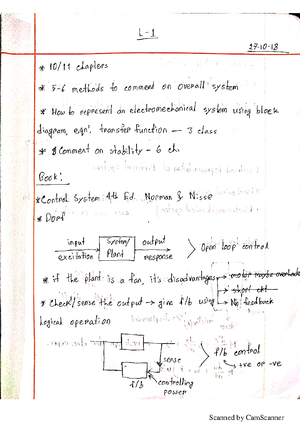 L-1
27-10-18
* 10/11 chapters
* 5-6 methods to comment on overall system
* How to represent an electromechanical system using block
diagram, eqn, transfer function — 3 class
* Comment on stability - 6 ch.
Book:
* Control System 4th Ed. Norman & Nisse
* Dorf
input
excitation
System/
Plant
output
response
Open loop control
* if the plant is a fan, it's disadvantages
short ckt
No feedback
* Check/sense the output → give f/b using
logical operation
sense
f/b
controlling
power
f/b control
+ve or -ve
Scanned by CamScanner